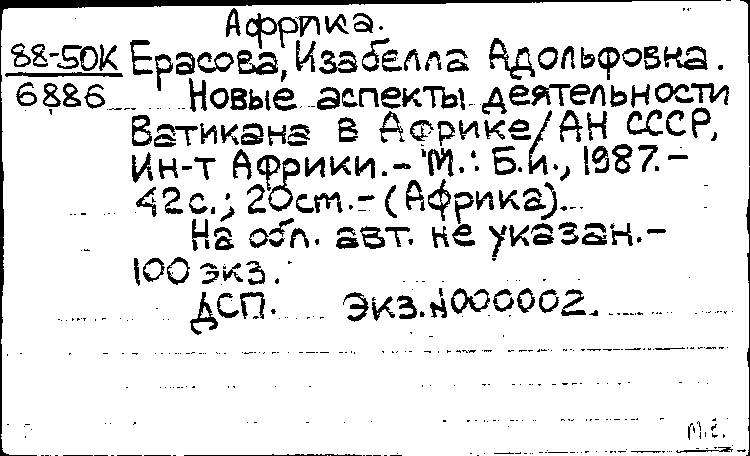 Африка.
88-50К Ерасова, Изабелла Адольфовна.
6886 Новые аспекты деятельности
Ватикана в Африке/АН СССР,
Ин-т Африки.- М.: Б.и., 1987.-
42с.; 20см.- (Африка).
На обл. авт. не указан.-
100 экз.
ДСП. Экз.N000002.
М.Е.